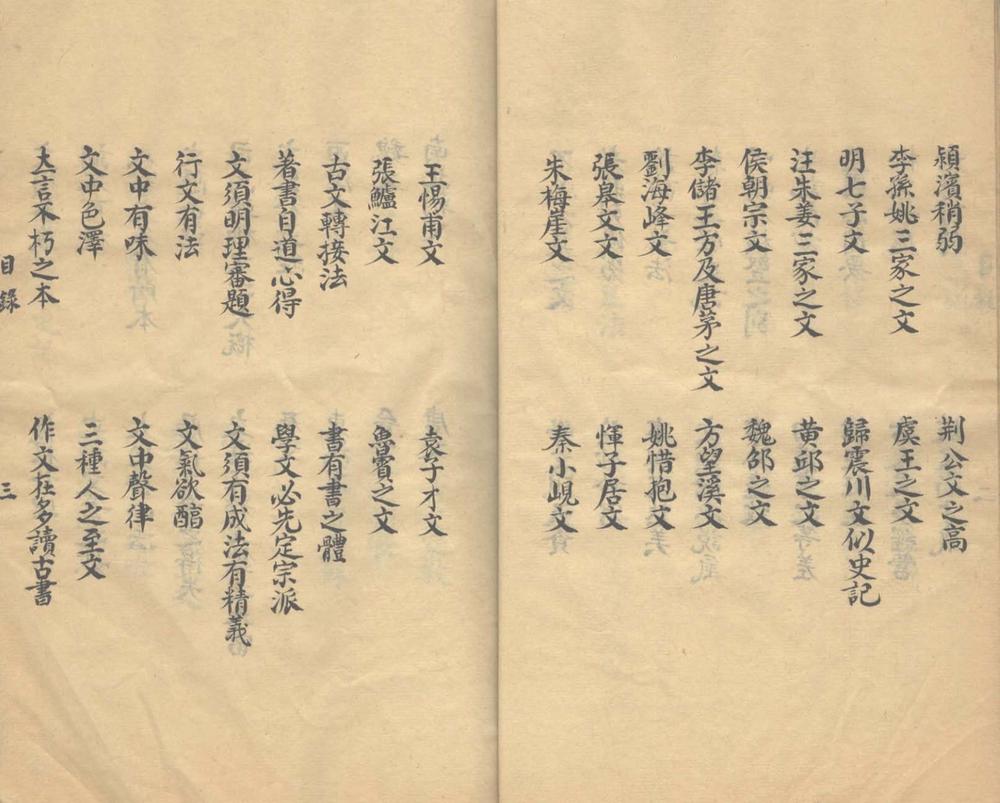 潁濱稍弱
荆公文之高
李孫姚三家之文
虞王之文
明七子文
歸震川文似史記
汪朱姜三家之文
黄邱之文
侯朝宗文
魏邵之文
李儲王方及唐茅之文
方望溪文
劉海峰文
姚惜抱文
張皋文文
惲子居文
朱梅崖文
秦小峴文
王惕甫文
袁子才文
張鱸江文
魯賓之文
古文轉接法
書有書之體
著書自道心得
學文必先定宗派
文須明理審題
文須有成法有精義
行文有法
文氣欲醕
文中有味
文中聲律
文中色澤
三種人之至文
立言不朽之本
作文在多讀古書
目錄
三